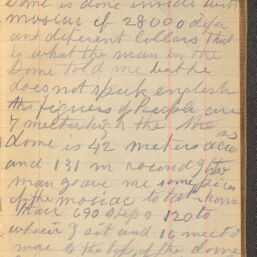 Dome is done inside with
mosiac of 28000 difer
ant different Collars that
is what the man in the
Dome told me but he
does not speak english
the figuers of People are
7 meters high the
dome is 42 meters acco
and 131 m round
man gave me some pices
of the mosiac to take home
690 steps 120 to
where I sit and 16 meet
more to the top of the dome